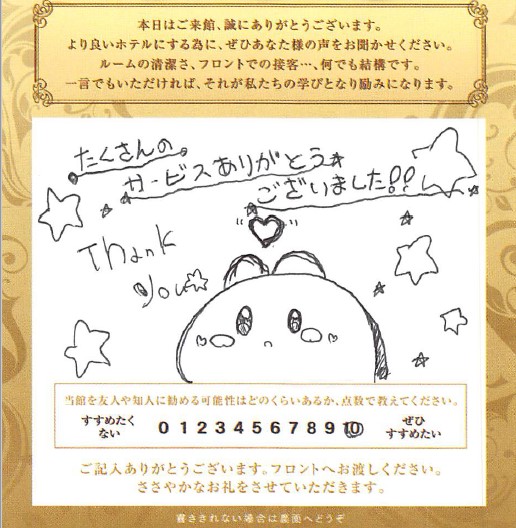 本日はご来館、誠にありがとうございます。
より良いホテルにする為に、ぜひあなた様の声をお聞かせください。
ルームの清潔さ、フロントでの接客…、何でも結構です。
一言でもいただければ、それが私たちの学びとなり励みになります。
たくさんの
サービスありがとう
ございました!!
Thank
you
当館を友人や知人に勧める可能性はどのくらいあるか、点数で教えてください。
すすめたく
ない
0 1 2 3 4 5 6 7 8 9 10
ぜひ
すすめたい
ご記入ありがとうございます。フロントへお渡しください。
ささやかなお礼をさせていただきます。
書ききれない場合は裏面へどうぞ